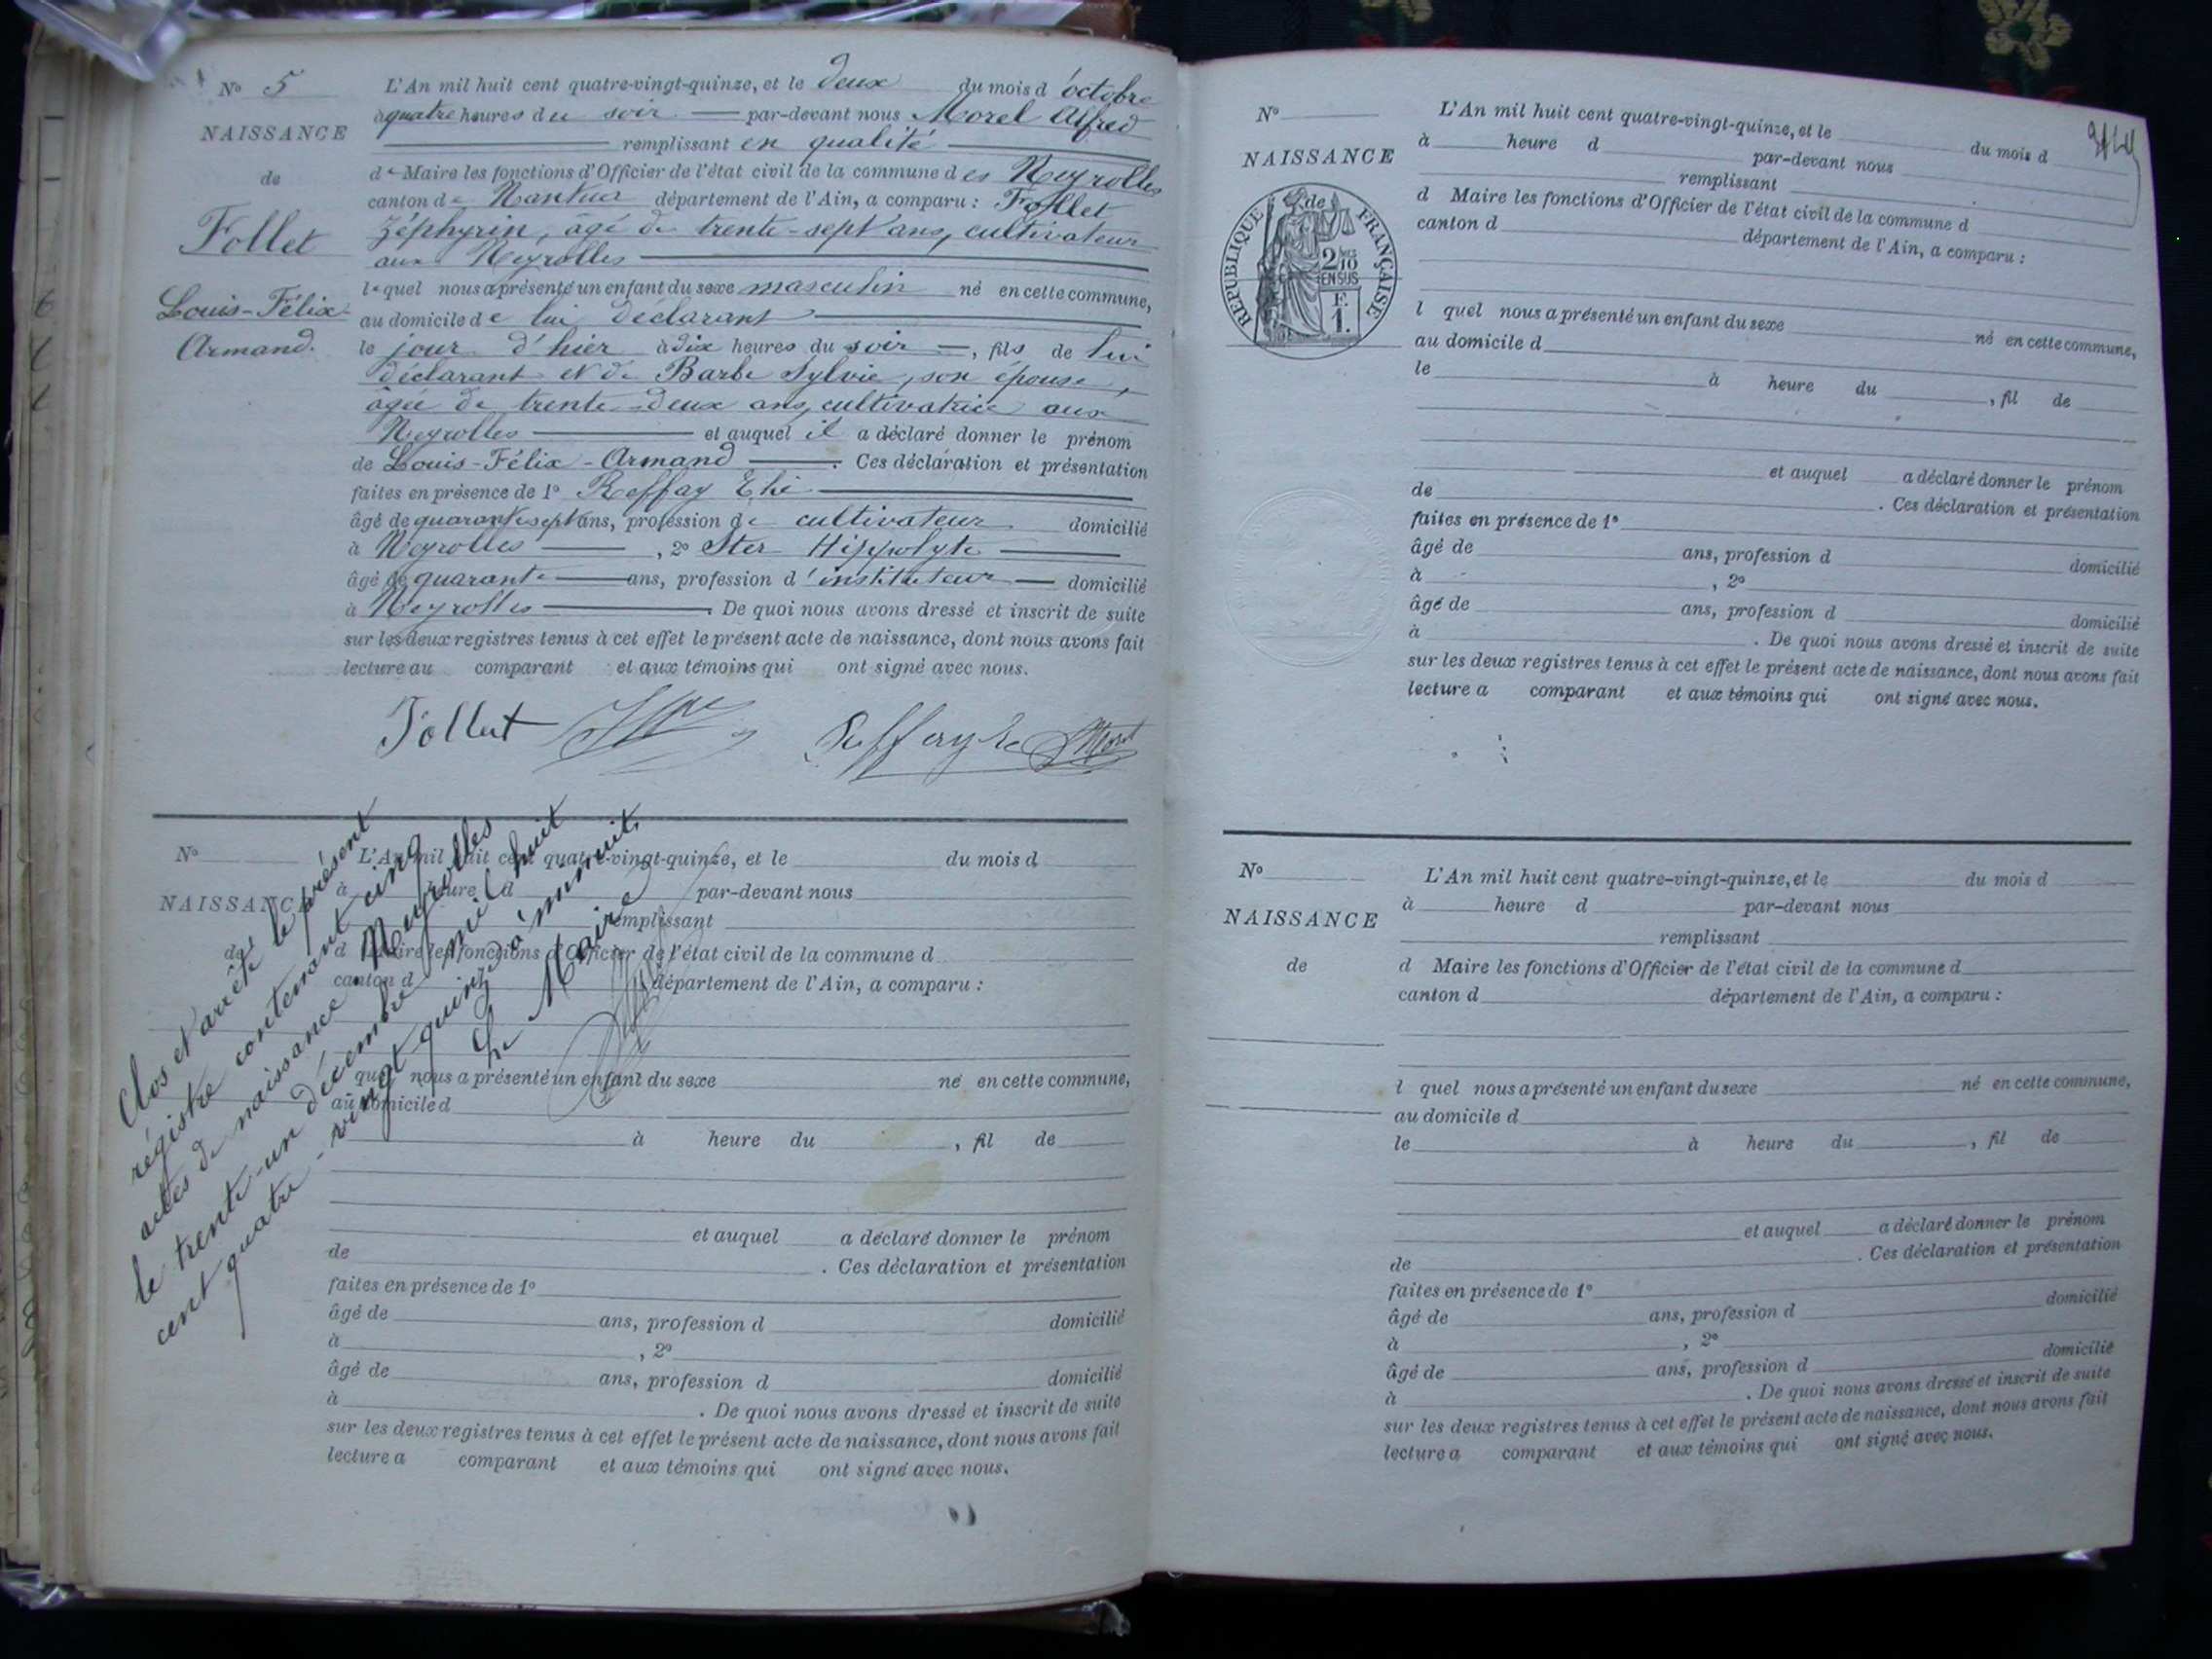 N° 5
NAISSANCE
de
Follet
Louis-Félix-
Armand.
L'An mil huit cent quatre-vingt-quinze, et le deux du mois d'octobre
à quatre heures du soir par-devant nous Morel Alfred
remplissant en qualité
de Maire les fonctions d'Officier de l'état civil de la commune des Neyrolles
canton de Nantua département de l'Ain, a comparu : Follet
Zéphyrin, âgé de trente-sept ans, cultivateur
aux Neyrolles
lequel nous a présenté un enfant du sexe masculin né en cette commune,
au domicile de lui déclarant
le jour d'hier à dix heures du soir, fils de lui
déclarant et de Barbe Sylvie, son épouse,
âgée de trente-deux ans, cultivatrice aux
Neyrolles et auquel il a déclaré donner le prénom
de Louis-Félix-Armand. Ces déclaration et présentation
faites en présence de 1° Reffay
âgé de quarante sept ans, profession de cultivateur domicilié
à Neyrolles, 2° Ster Hippolyte
âgé de quarante ans, profession d'instituteur domicilié
à Neyrolles. De quoi nous avons dressé et inscrit de suite
sur les deux registres tenus à cet effet le présent acte de naissance, dont nous avons fait
lecture au comparant et aux témoins qui ont signé avec nous.
Follet Morel
N°
NAISSANCE
de
L'An mil huit cent quatre-vingt-quinze, et le du mois d
à heure d par-devant nous
remplissant
d Maire les fonctions d'Officier de l'état civil de la commune d
canton d département de l'Ain, a comparu :
quel nous a présenté un enfant du sexe né en cette commune,
au domicile d
à heure du , fil de
et auquel a déclaré donner le prénom
de . Ces déclaration et présentation
faites en présence de 1°
âgé de ans, profession d domicilié
à , 2°
âgé de ans, profession d domicilié
à . De quoi nous avons dressé et inscrit de suite
sur les deux registres tenus à cet effet le présent acte de naissance, dont nous avons fait
lecture a comparant et aux témoins qui ont signé avec nous.
Clos et arrêté le présent
régistre contenant cinq
actes de naissance Neyrolles
le trente-un décembre mil huit
cent quatre-vingt quinze à minuit.
Le Maire
N°
NAISSANCE
RÉPUBLIQUE FRANÇAISE
de
2/10
EN SUS
F.
1.
L'An mil huit cent quatre-vingt-quinze, et le du mois d
à heure d par-devant nous
remplissant
d Maire les fonctions d'Officier de l'état civil de la commune d
canton d département de l'Ain, a comparu :
l quel nous a présenté un enfant du sexe né en cette commune,
au domicile d
le à heure du , fil de
et auquel a déclaré donner le prénom
de . Ces déclaration et présentation
faites en présence de 1°
âgé de ans, profession d domicilié
à , 2°
âgé de ans, profession d domicilié
à . De quoi nous avons dressé et inscrit de suite
sur les deux registres tenus à cet effet le présent acte de naissance, dont nous avons fait
lecture a comparant et aux témoins qui ont signé avec nous.
N°
NAISSANCE
de
L'An mil huit cent quatre-vingt-quinze, et le du mois d
à heure d par-devant nous
remplissant
d Maire les fonctions d'Officier de l'état civil de la commune d
canton d département de l'Ain, a comparu :
l quel nous a présenté un enfant du sexe né en cette commune,
au domicile d
le à heure du , fil de
et auquel a déclaré donner le prénom
de . Ces déclaration et présentation
faites en présence de 1°
âgé de ans, profession d domicilié
à , 2°
âgé de ans, profession d domicilié
à . De quoi nous avons dressé et inscrit de suite
sur les deux registres tenus à cet effet le présent acte de naissance, dont nous avons fait
lecture a comparant et aux témoins qui ont signé avec nous.